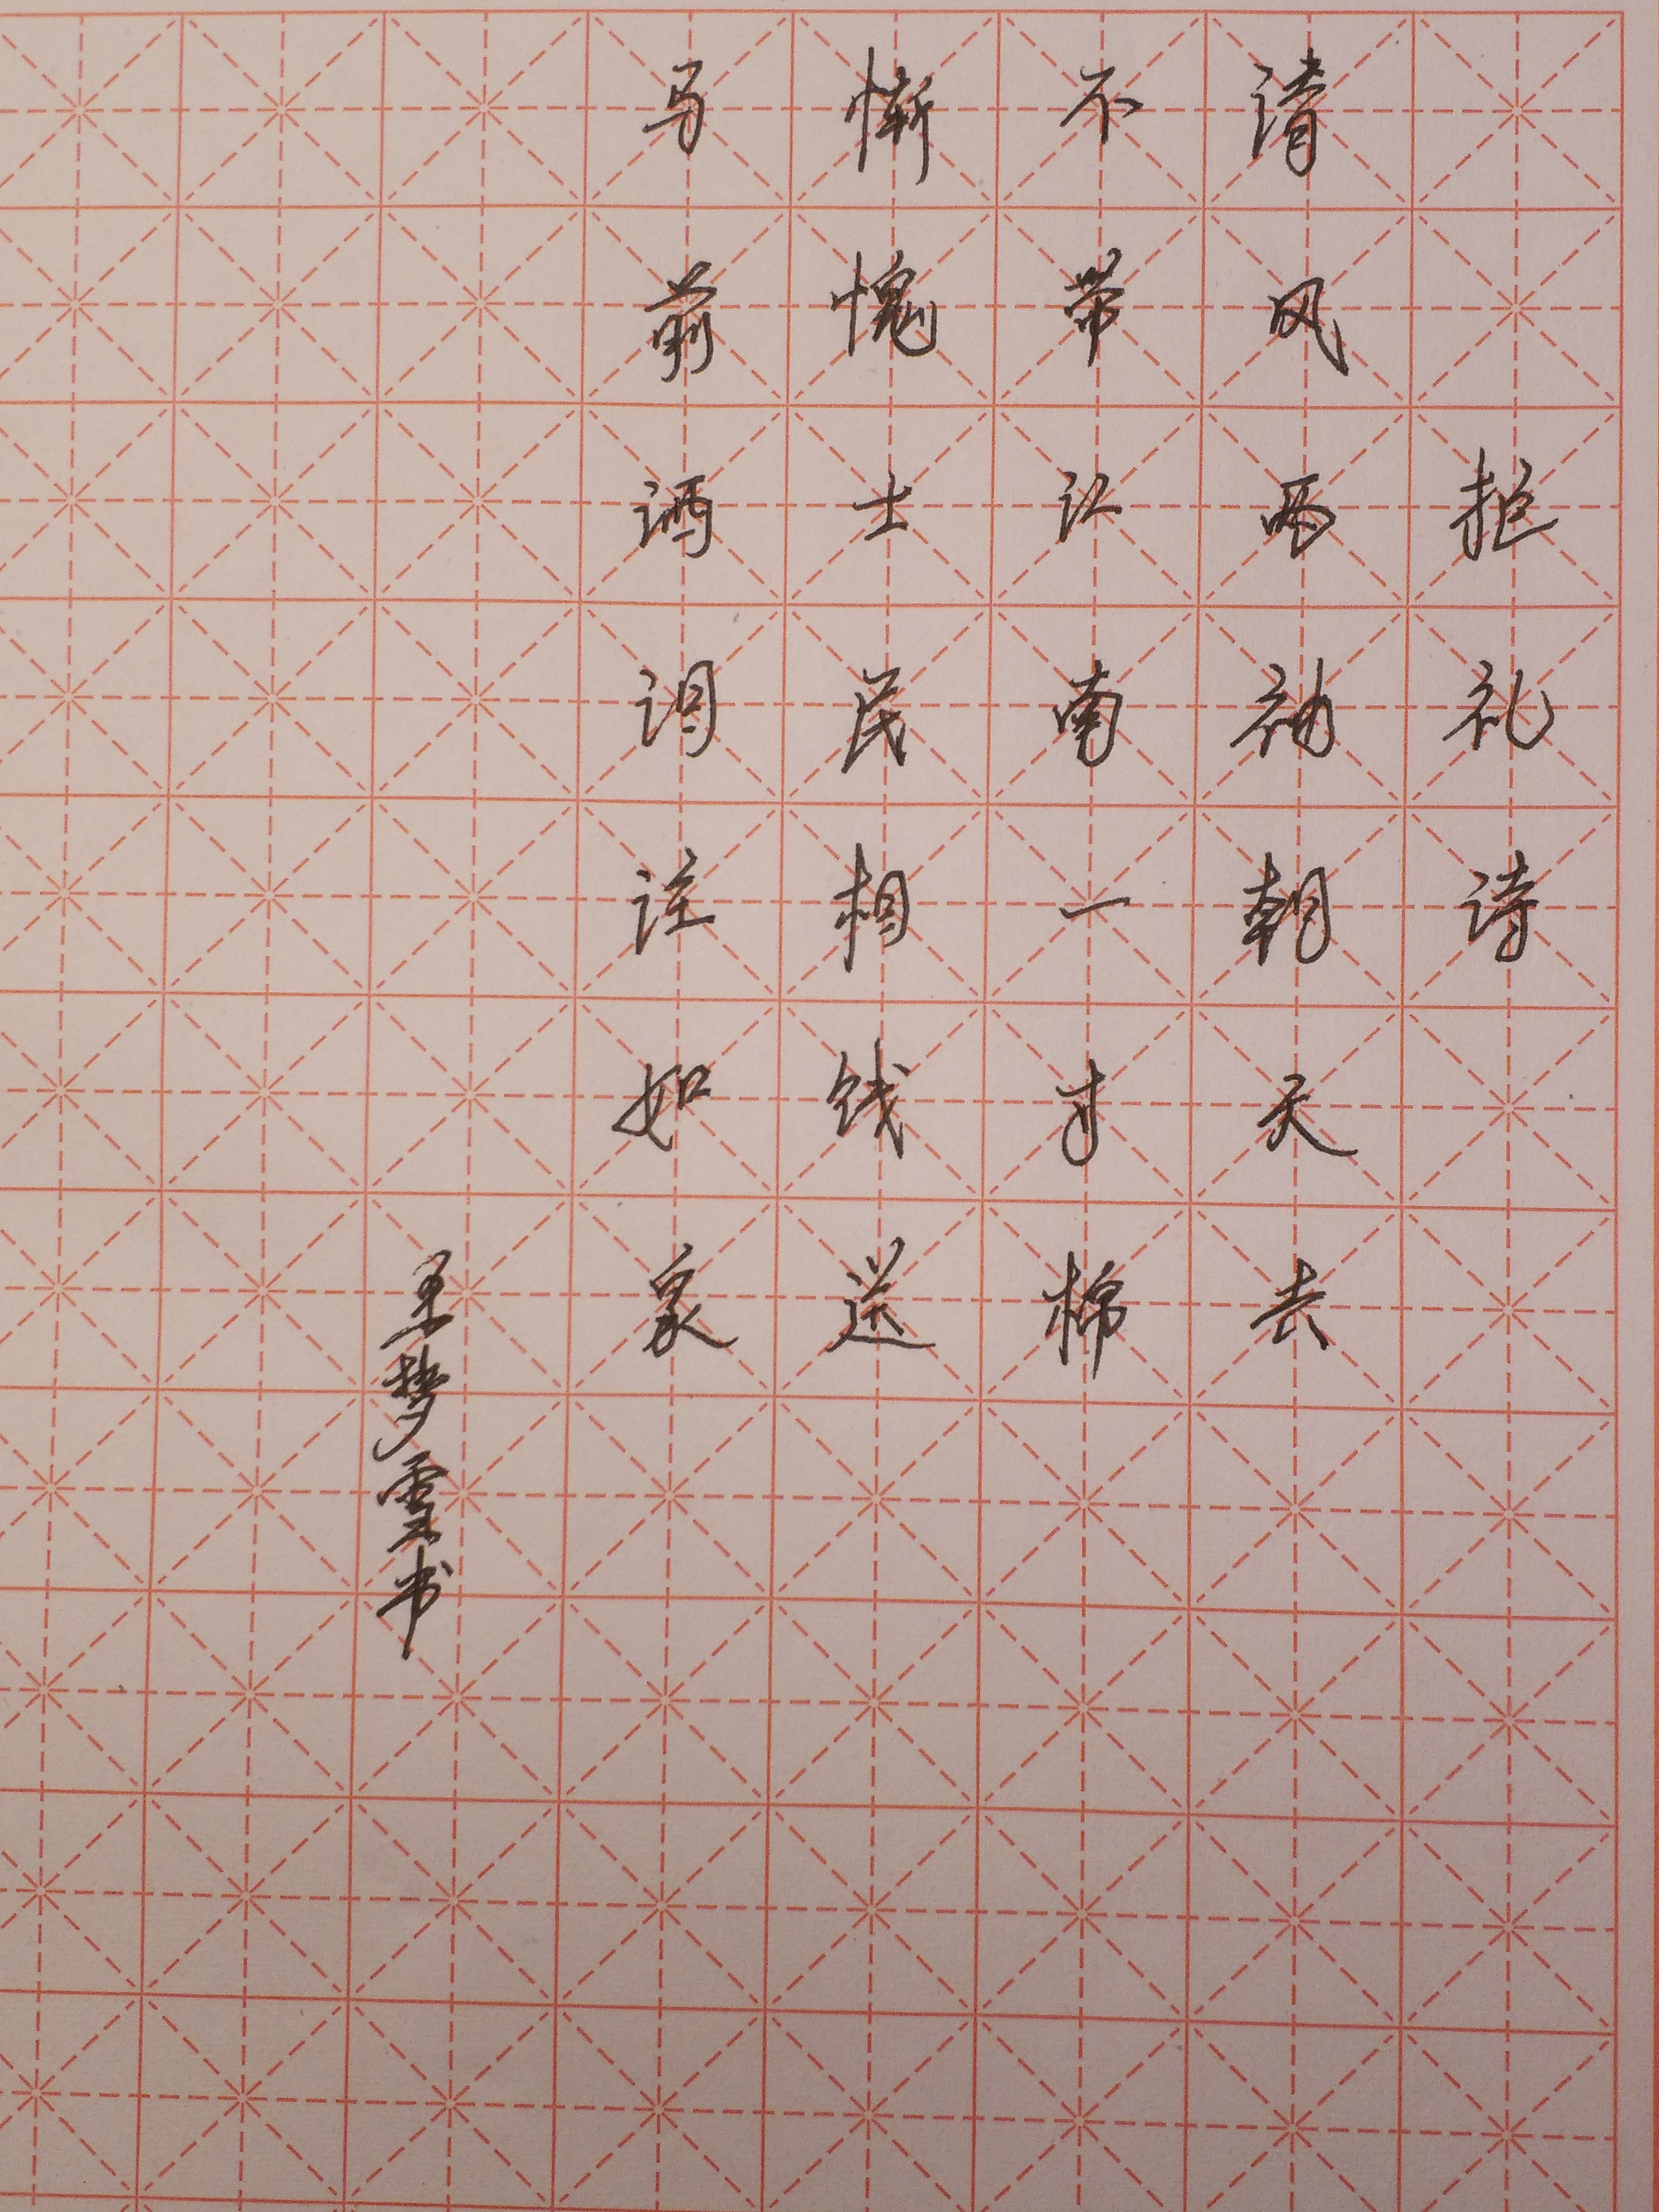 拒礼诗
清风两袖朝天去
不带江南一寸棉
惭愧士民相饯送
马前洒泪注如泉
王梦雲书